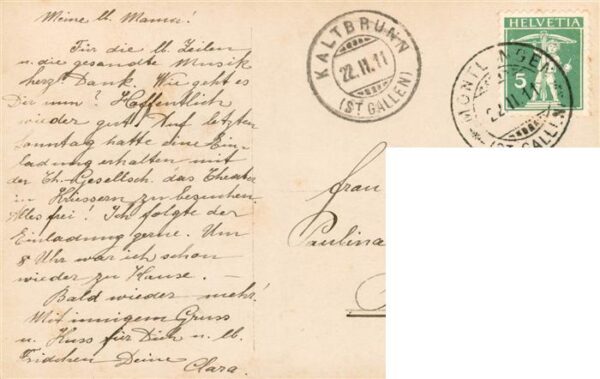 Meine lb. Mama!
Für die lb. Zeilen
u. die gesandte Musik
herz. Dank. Wie geht es
Dir nun? Hoffentlich
wieder gut. Auf letzten
Sonntag hatte eine Ein-
ladung erhalten mit
der Th.-Gesellsch. das Theater
in Kriessern zu besuchen.
Alles frei! Ich folgte der
Einladung gerne. Um
8 Uhr war ich schon
wieder zu Hause. —
Bald wieder mehr!
Mit innigem Gruss
u. Kuss für Dich u. lb.
Fridchen Deine
Clara.
KALTBRUNN
22.II.11
(ST GALLEN)
HELVETIA
5
MONTLINGEN
22.II.11
(ST. GALLEN)
Frau
Paulina